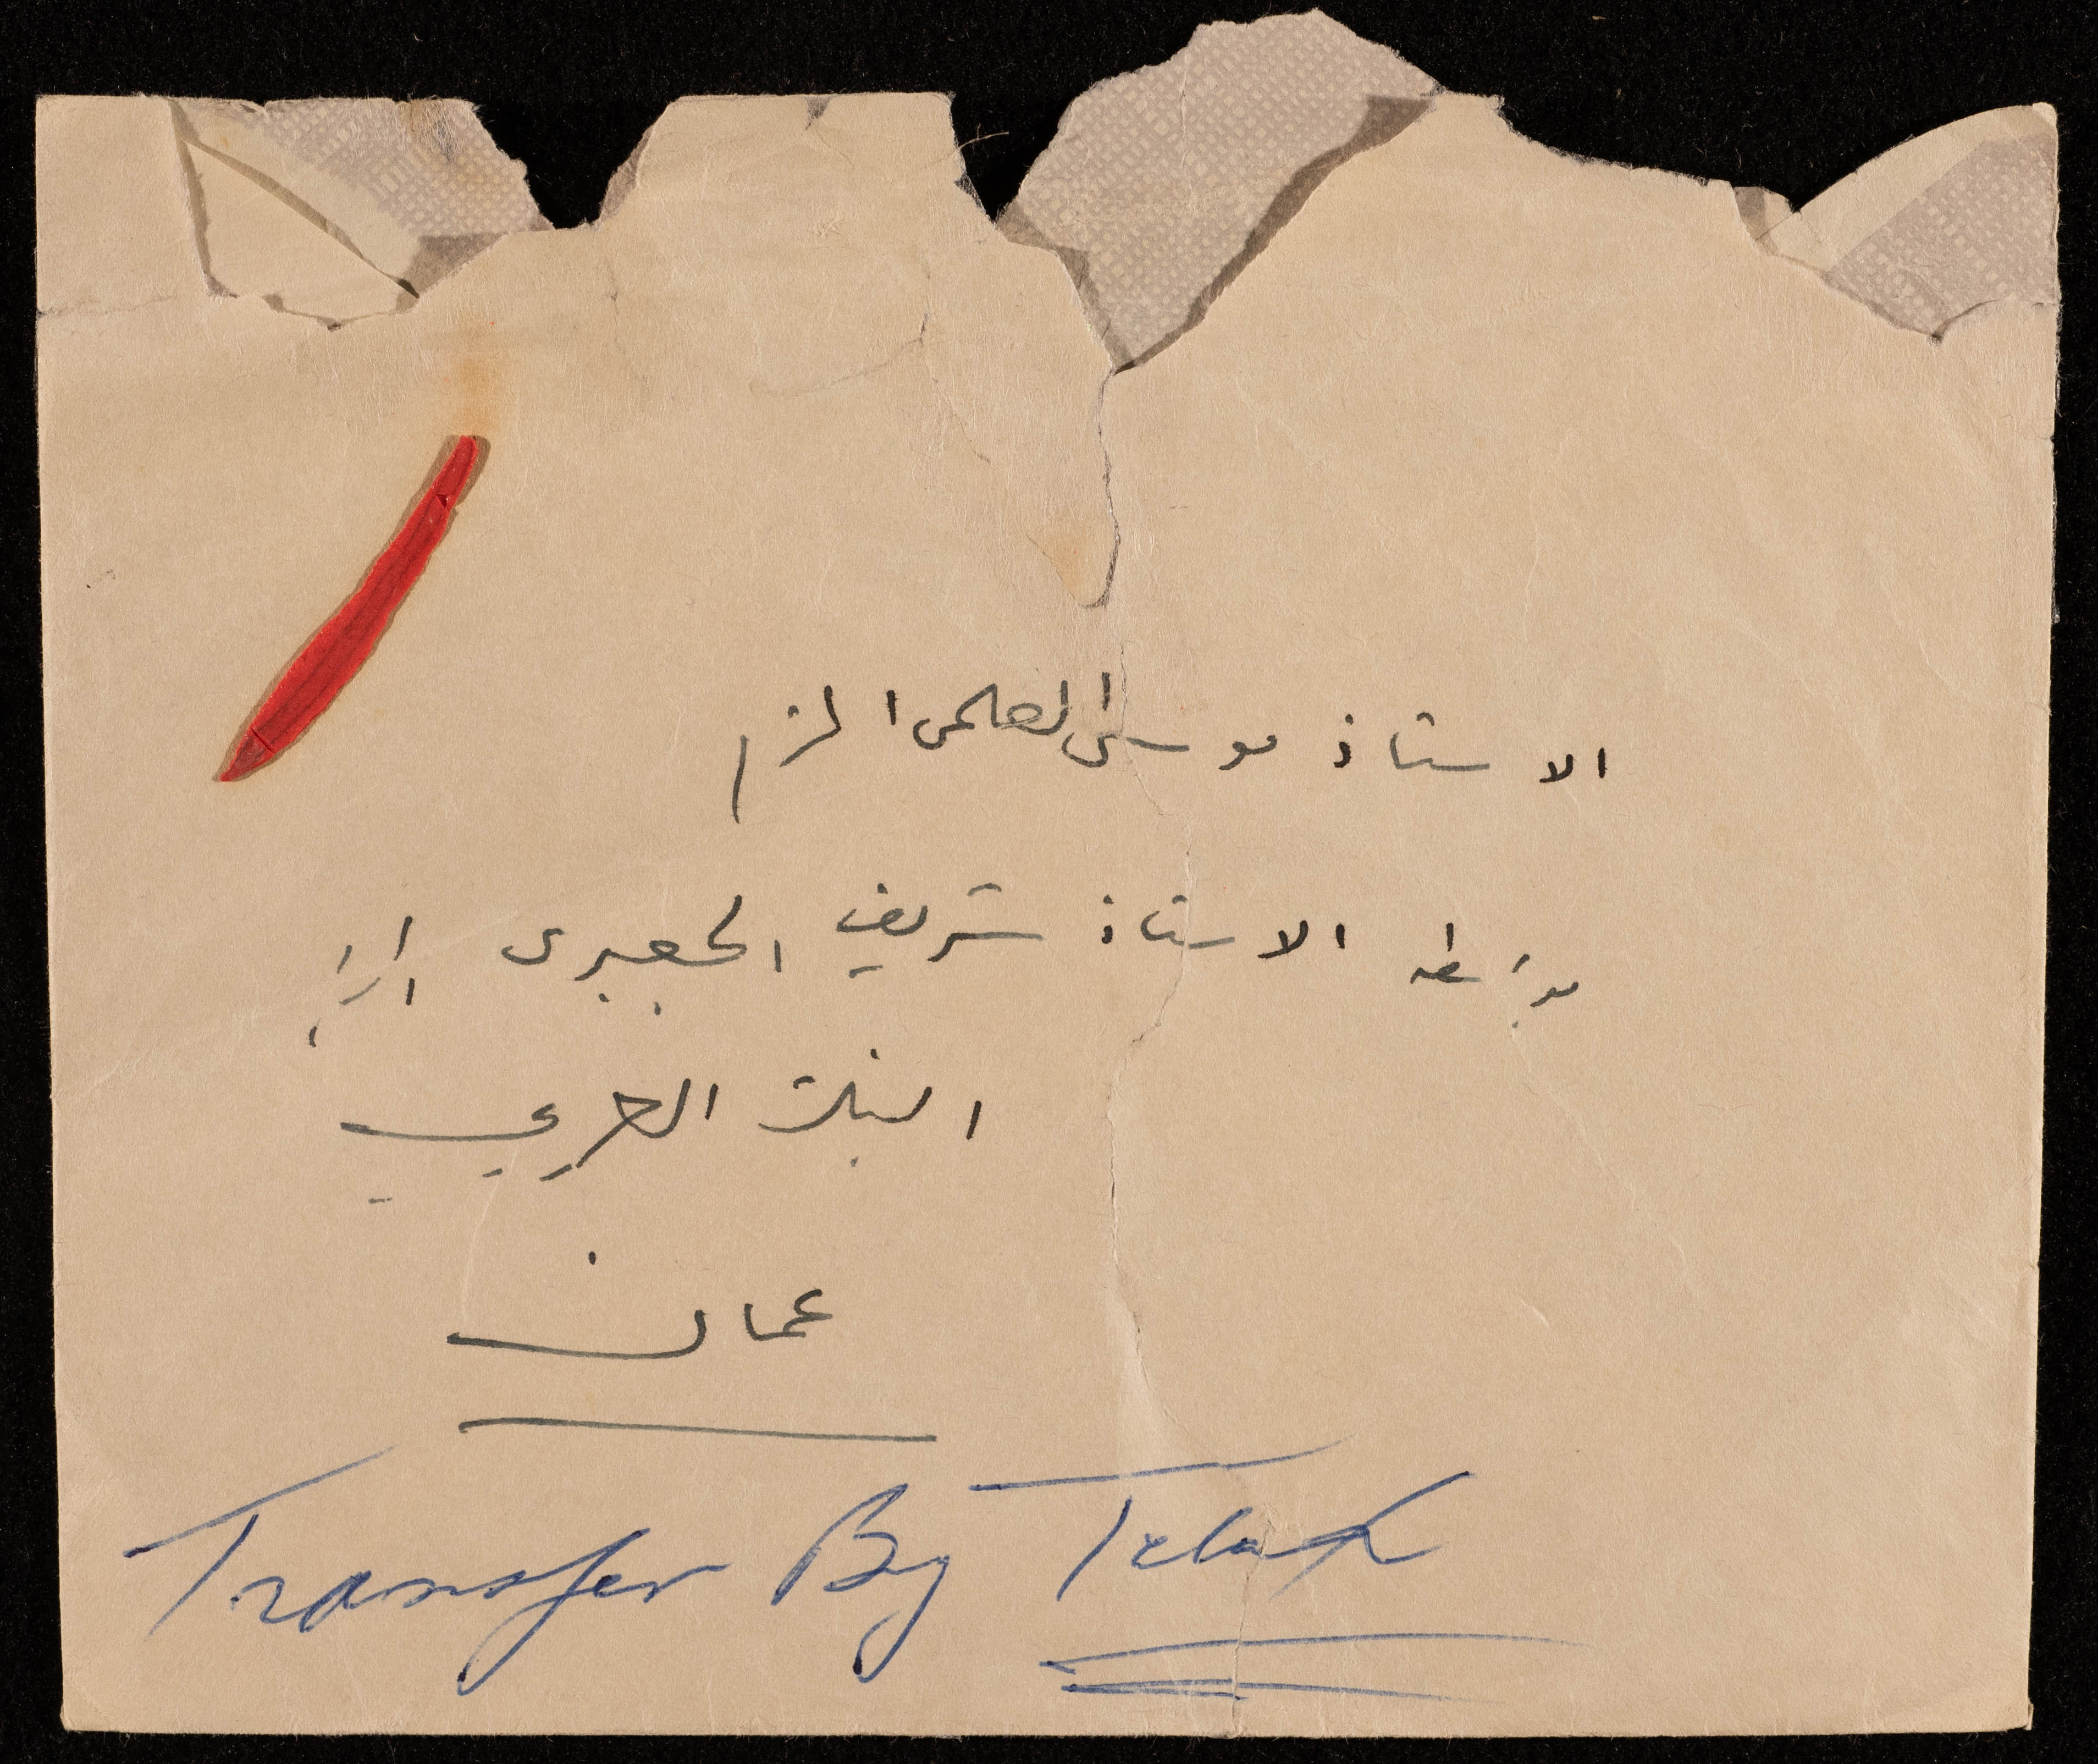 الاستاذ موسى العلمى المحترم
بواسطه الاستاذ شريف الجعبرى
البنك العربي
عمان
Transfer By Telex